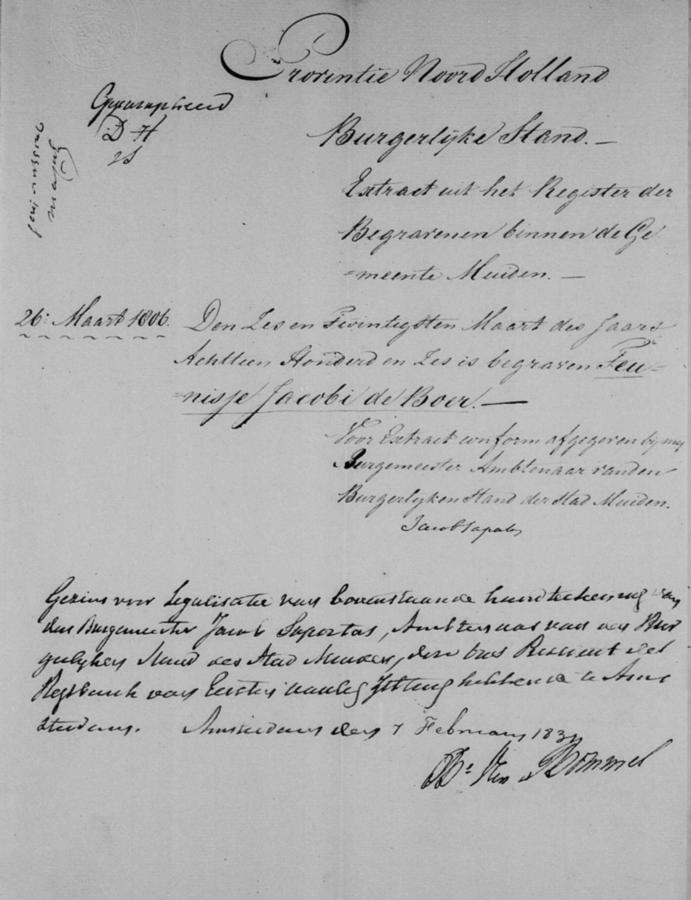 Provintie Noord Holland
Geparapheerd
D H
Burgerlijke Stand. —
Extract uit het Register der
Begravenen binnen de Ge
=meente Muiden. —
26: Maart 1806.
Den Zes en Twintigsten Maart des Jaars
Achttien Honderd en Zes is begraven Teu=
=nisje Jacobi de Boer. —
Voor Extract conform afgegeven by my
Burgemeester Ambtenaar van den
Burgerlyken Stand der Stad Muiden.
Jacob Saportas
Gezien voor Legalisatie van bovenstaande handteekening van
den Burgemeester Jacob Saportas, Ambtenaar van den Bur
gerlyken Stand der Stad Muiden, door ons President der
Regtbank van Eersten aanleg zitting hebbende te Ams
terdam. Amsterdam den 7 February